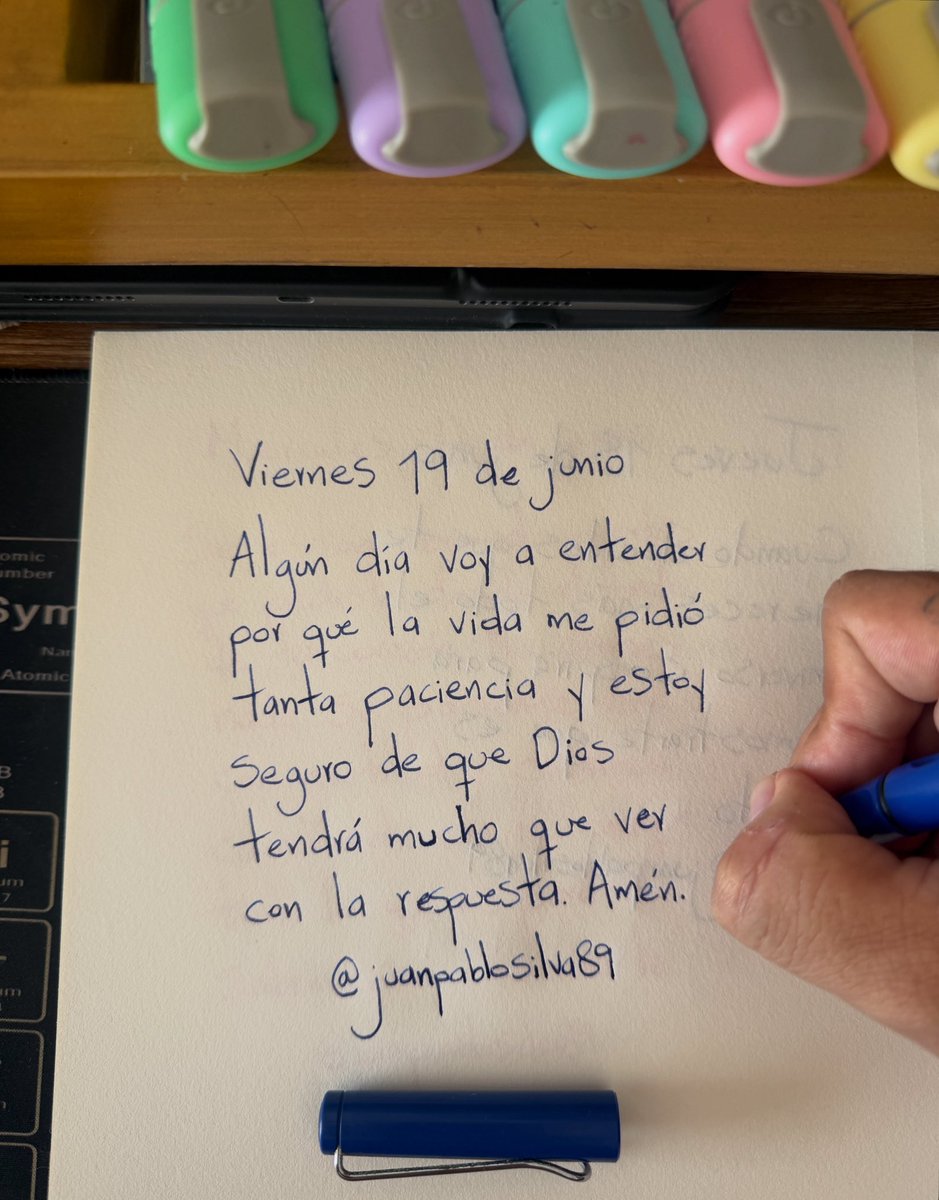 Viernes 19 de junio
Algún día voy a entender
por qué la vida me pidió
tanta paciencia y estoy
seguro de que Dios
tendrá mucho que ver
con la respuesta. Amén.
@juanpablosilva89
omic
umber
Sym
Atomic